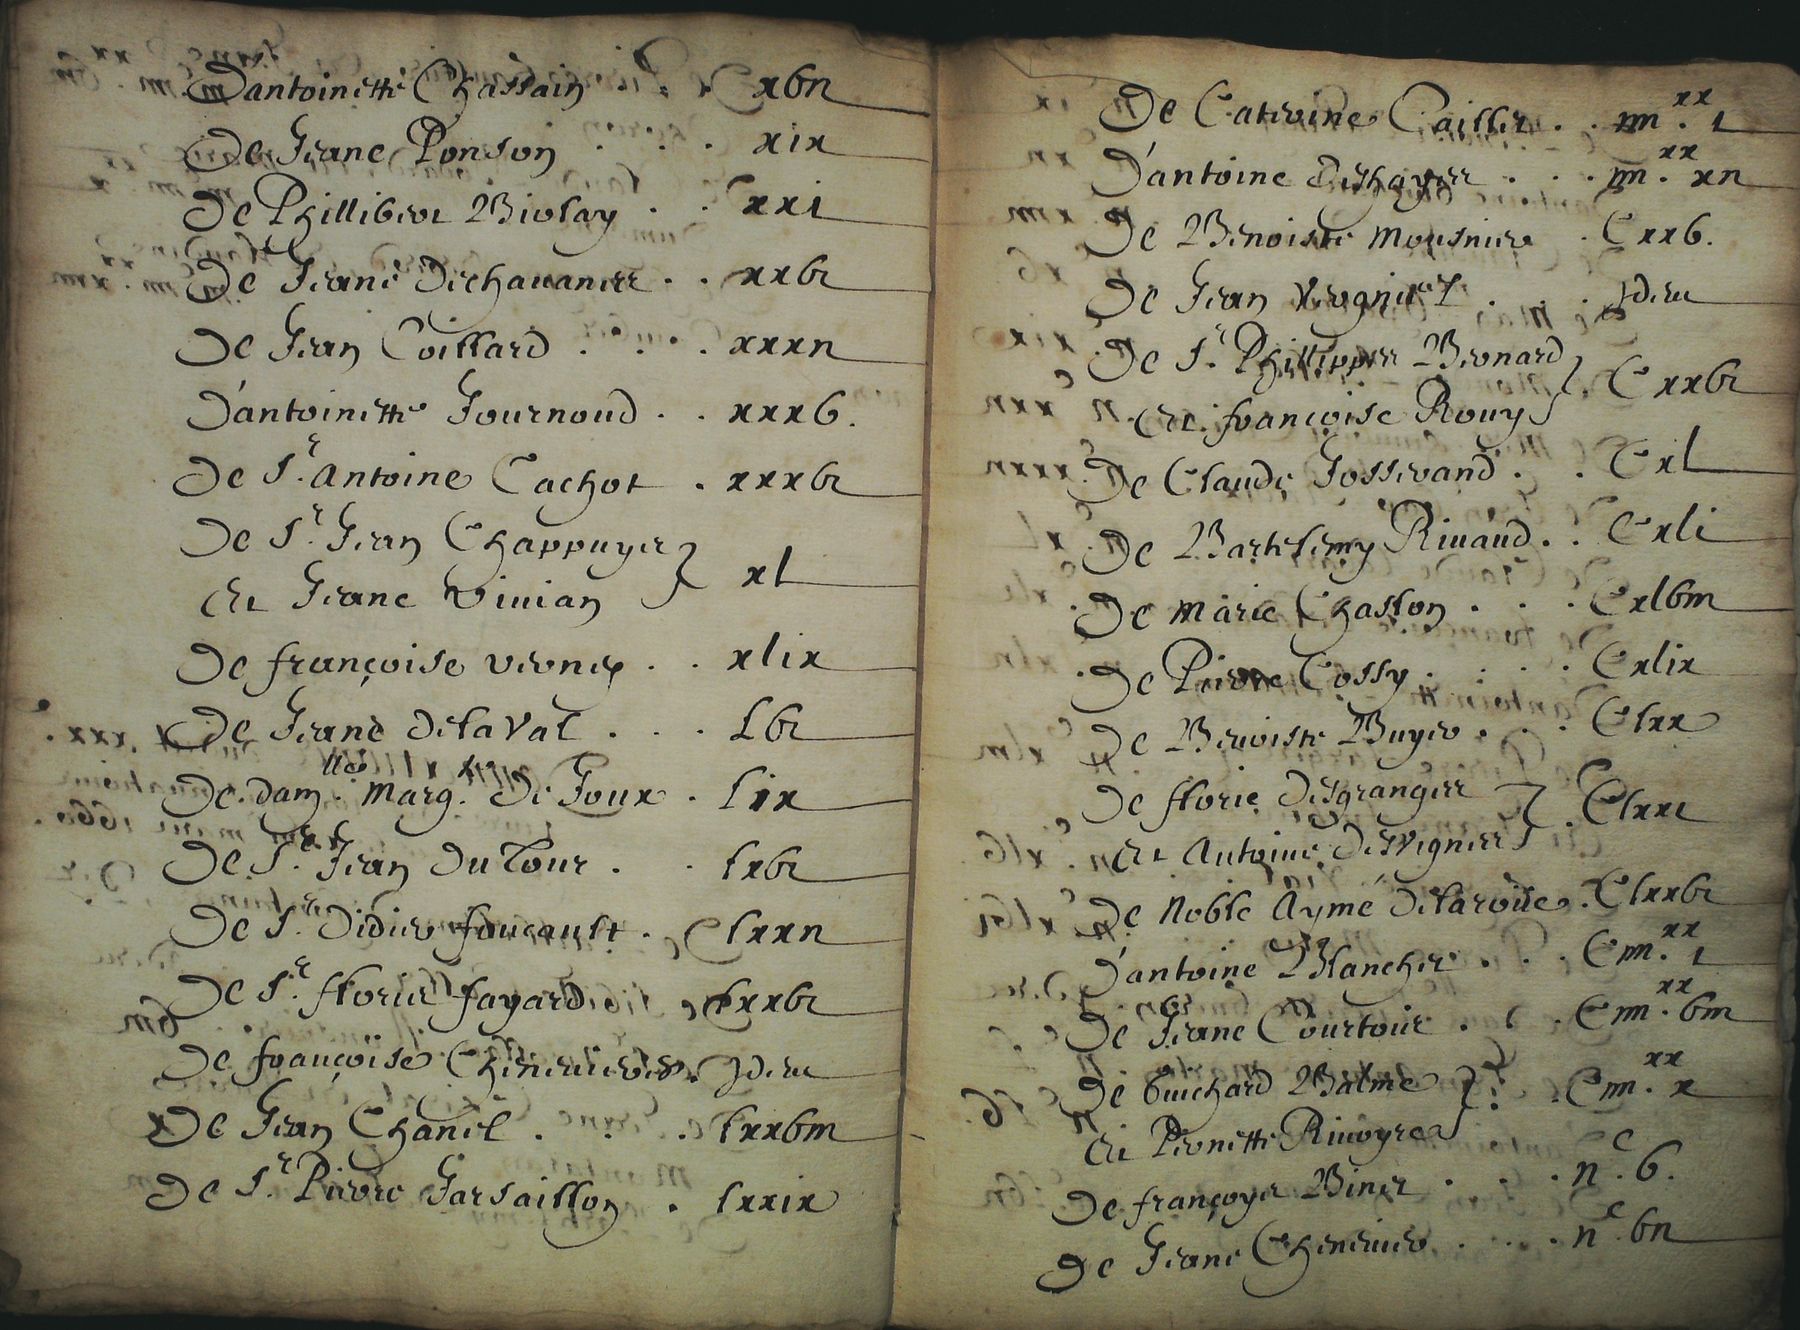 D'antoinette Chassain . . . xbii
De Jeane Ponson . . . xix
De Phillibert Violay . . xxi
De Jeane Dechauanes . . xxbi
De Jean Coillard . . . xxxii
D'antoinette Journoud . . xxxb.
De Sr. Antoine Cachot . xxxbi
De Sr. Jean Chappuyes } xl
Et Jeane Viuian
De françoise verney . . xlix
De Jeane Delaval . . . lbi
De damlle Marg. De Foux . lix
De Sr. Jean Du Tour . . lxbi
De Sr. Didier foucault . lxxii
De Sr. floris fayard . lxxbi
De françoise Cheneuieres . Idem
De Jean Chanel . . . lxxbiii
De Sr. Pierre Garsaillon . lxxix
De Caterine Caillet . . iiiixx. i
D'antoine Deshayes . . . iiiixx. xii
De Benoiste Mousnier . Cxxb.
De Jean Vergniet . . . Idem
De Sr. Phillippes Bernard } Cxxbi
Et françoise Rouy
De Claude Josserand . . Cxl
De Bartelemy Riuaud . . Cxli
De Marie Chaslon . . . Cxlbiii
De Pierre Cossy . . . . Cxlix
De Benoiste Buyer . . . Clxx
De florie Desgranges } Clxxi
Et Antoine Desvignes
De Noble Aymé Delaroüe . Clxxbi
D'antoine Blanchet . . . Ciiiixx. i
De Jeane Courtois . . . Ciiiixx. biii
De Guichard Balme } . Ciiiixx. x
Et Pernette Riuoyre
De françoys Binet . . . . iic b.
De Jeane Cheneuier . . . . iic bii